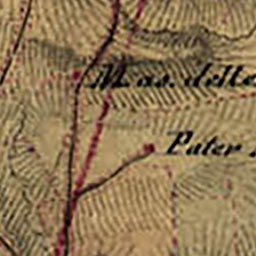 Mas. delle
Pater